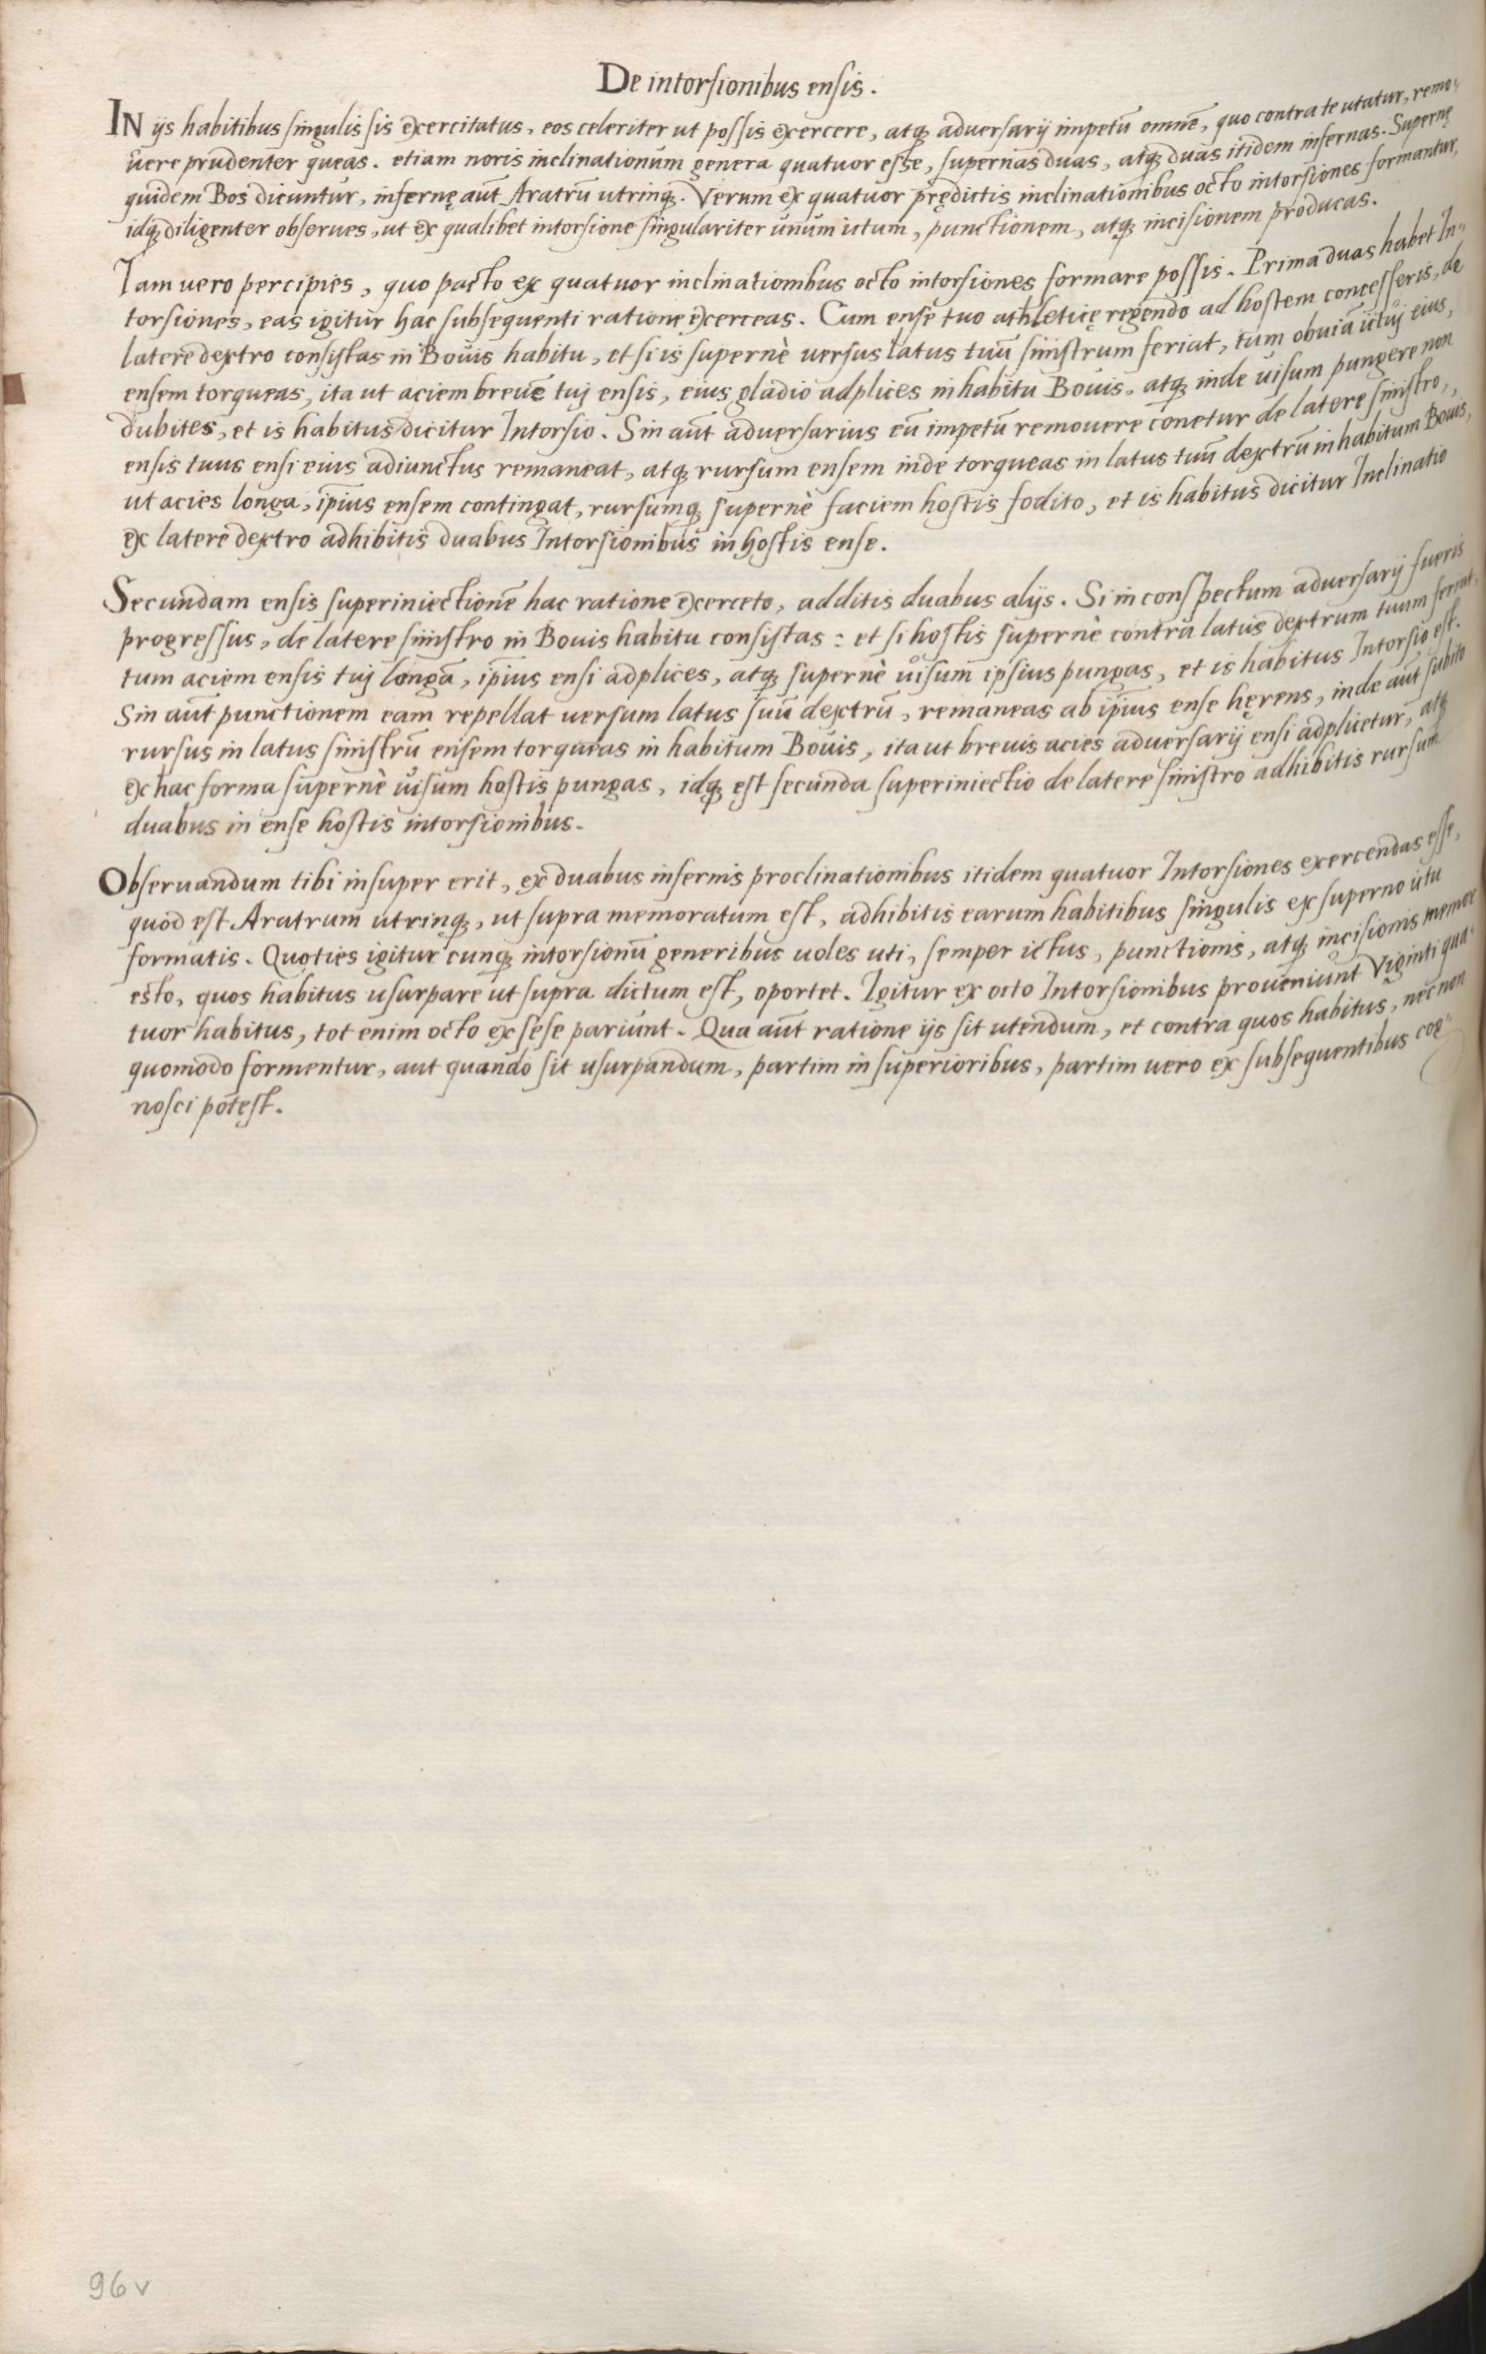 De intorsionibus ensis.
IN ijs habitibus singulis sis exercitatus, eos celeriter ut possis exercere, atq; adversarij impetū omnē, quo contra te utatur, remo-
uere prudenter queas. etiam noris inclinationum genera quatuor esse, supernas duas, atq; duas itidem infernas. Supernę
quidem Bos dicuntur, infernę aūt Aratrū utrinq;. Verum ex quatuor prędictis inclinationibus octo intorsiones formantur,
idq; diligenter obserues, ut ex qualibet intorsione singulariter unum ictum, punctionem, atq; incisionem producas.
Iam uero percipies, quo pacto ex quatuor inclinationibus octo intorsiones formare possis. Prima duas habet In-
torsiones, eas igitur hac subsequenti ratione exerceas. Cum ense tuo athleticę regendo ad hostem concesseris, de
latere dextro consistas in Bouis habitu, et si is supernè uersus latus tuū sinistrum feriat, tum obuiā ictuj eius,
ensem torqueas, ita ut aciem breuē tuj ensis, eius gladio adplices in habitu Bouis, atq; inde uisum pungere non
dubites, et is habitus dicitur Intorsio. Sin aūt aduersarius eū impetū remouere conetur de latere sinistro,
ensis tuus ensi eius adiunctus remaneat, atq; rursum ensem inde torqueas in latus tuū dextrū in habitum Bouis,
ut acies longa, ip̄ius ensem contingat, rursumq; supernè faciem hostis fodito, et is habitus dicitur Inclinatio
ex latere dextro adhibitis duabus Intorsionibus in hostis ense.
Secundam ensis superiniectionē hac ratione exerceto, additis duabus alijs. Si in conspectum aduersarij fueris
progressus, de latere sinistro in Bouis habitu consistas: et si hostis supernè contra latus dextrum tuum feriat,
tum aciem ensis tuj longā, ip̄ius ensi adplices, atq; supernè uisum ipsius pungas, et is habitus Intorsio est.
Sin aūt punctionem eam repellat uersum latus suū dextrū, remaneas ab ip̄ius ense hęrens, inde aūt subito
rursus in latus sinistrū ensem torqueas in habitum Bouis, ita ut breuis acies aduersarij ensi adplicetur, atq;
ex hac forma supernè uisum hostis pungas, idq; est secunda superiniectio de latere sinistro adhibitis rursum
duabus in ense hostis intorsionibus.
Obseruandum tibi insuper erit, ex duabus infernis proclinationibus itidem quatuor Intorsiones exercendas esse,
quod est Aratrum utrinq;, ut supra memoratum est, adhibitis earum habitibus singulis ex superno ictu
formatis. Quoties igitur cunq; intorsionū generibus uoles uti, semper ictus, punctionis, atq; incisionis memor
esto, quos habitus usurpare ut supra dictum est, oportet. Igitur ex octo Intorsionibus proueniunt Viginti qua-
tuor habitus, tot enim octo ex sese pariunt. Qua aūt ratione ijs sit utendum, et contra quos habitus, nec non
quomodo formentur, aut quando sit usurpandum, partim in superioribus, partim uero ex subsequentibus cog-
nosci potest.
96 v